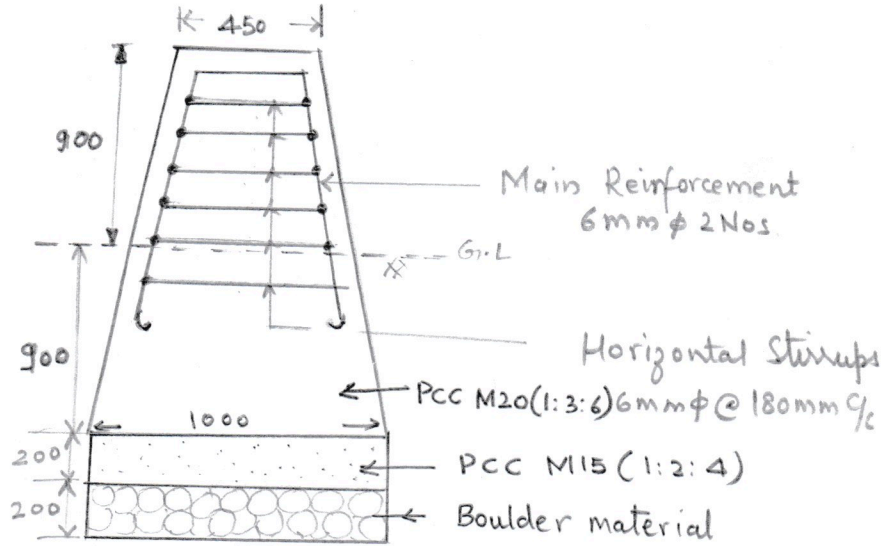 450
900
Main Reinforcement
6mm ϕ 2 Nos
G.L
900
Horizontal Stirrups
PCC M20(1:3:6) 6mm ϕ @ 180mm C/c
1000
200
PCC M15 (1:2:4)
200
Boulder material